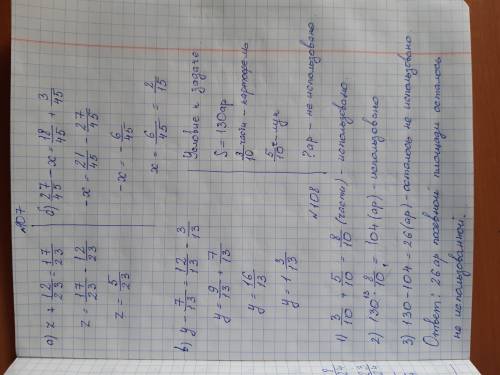 №107
а) z + 12/23 = 17/23
z = 17/23 - 12/23
z = 5/23
б) 27/45 - x = 18/45 + 3/45
-x = 21/45 - 27/45
-x = -6/45
x = 6/45 = 2/15
в) y - 7/13 = 12/13 - 3/13
y = 9/13 + 7/13
y = 16/13
y = 1 3/13
Условие к задаче
S = 130 ар
3/10 части - картофель
5/10 ч - лук
? ар - не использовано
№108
1) 3/10 + 5/10 = 8/10 (части) - использовано
2) 130 · 8/10 = 104 (ар) - использовано
3) 130 - 104 = 26 (ар) - осталось не использовано
Ответ: 26 ар посевной площади осталось
не использованной.